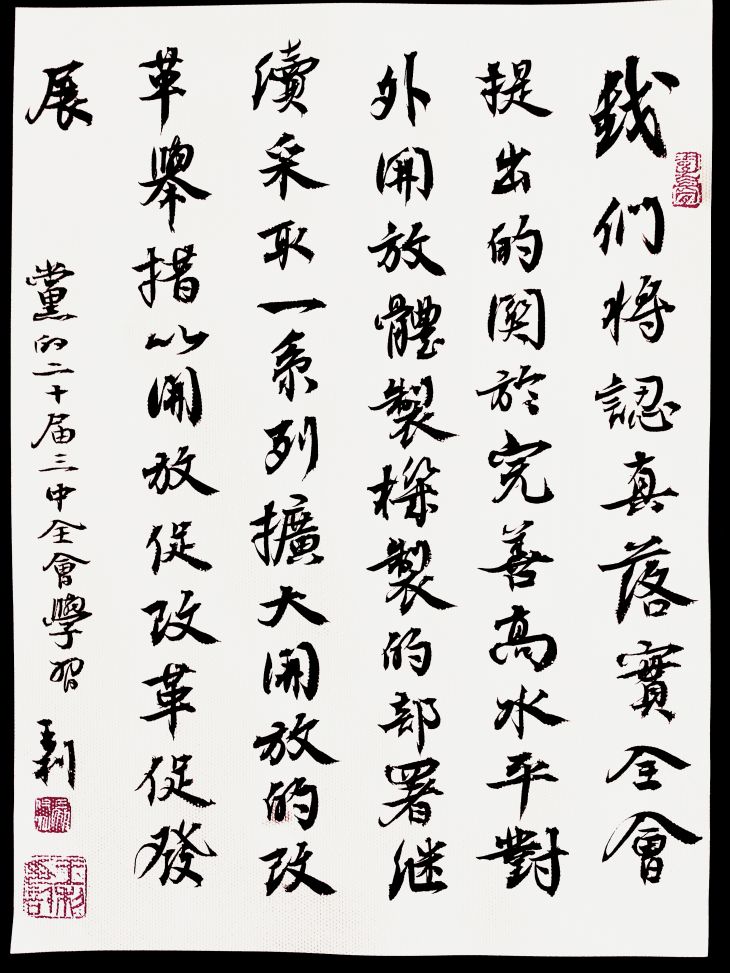 我們將認真落實全會
提出的關於完善高水平對
外開放體製機製的部署继
續采取一系列擴大開放的改
革舉措以開放促改革促發
展
黨的二十届三中全會學習